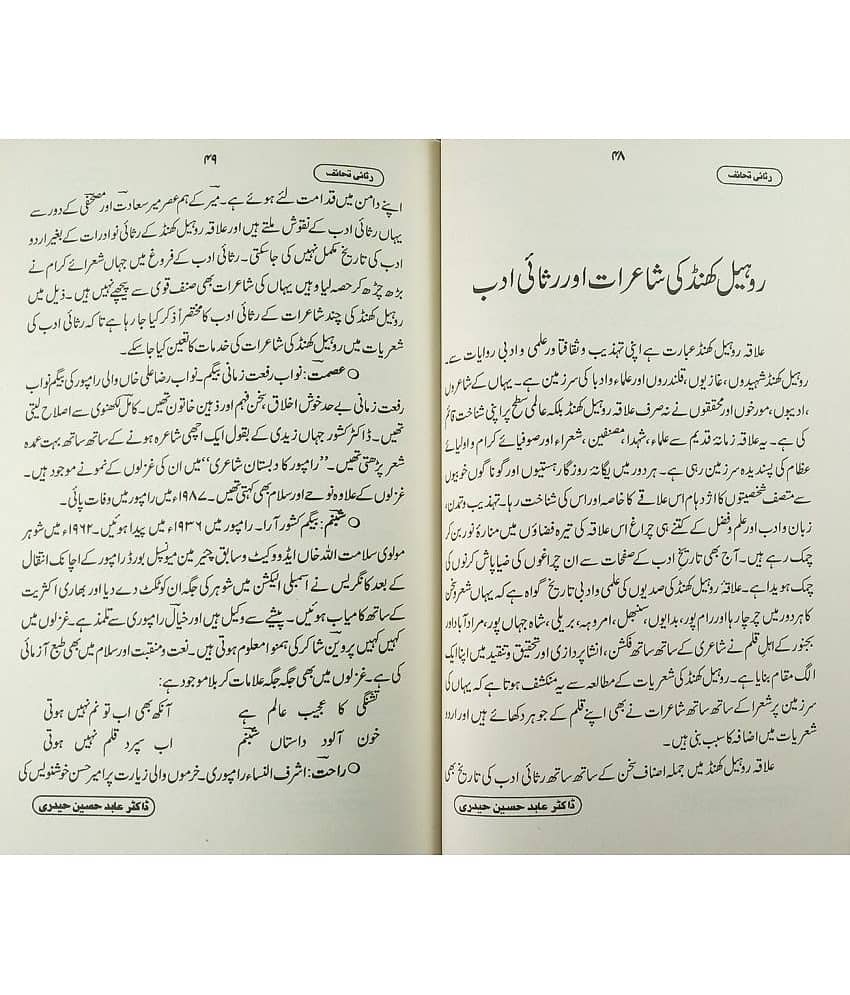 ۴۸
رثائی تحائف
روہیل کھنڈ کی شاعرات اور رثائی ادب
علاقہ روہیل کھنڈ عبارت ہے اپنی تہذیب و ثقافتا ور علمی و ادبی روایات سے۔
روہیل کھنڈ شہیدوں، غازیوں، قلندروں اور علماء و ادبا کی سرزمین ہے۔ یہاں کے شاعروں
، ادیبوں، مورخوں اور محققوں نے نہ صرف علاقہ روہیل کھنڈ بلکہ عالمی سطح پر اپنی شناخت قائم
کی ہے۔ یہ علاقہ زمانۂ قدیم سے علماء، شہدا، مصنفین، شعراء اور صوفیائے کرام و اولیائے
عظام کی پسندیدہ سرزمین رہی ہے۔ ہر دور میں یگانۂ روزگار ہستیوں اور گوناگوں خوبیوں
سے متصف شخصیتوں کا اژدہام اس علاقے کا خاصہ اور اس کی شناخت رہا۔ تہذیب و تمدن،
زبان و ادب اور علم و فضل کے کتنے ہی چراغ اس علاقہ کی تیرہ فضاؤں میں منارۂ نور بن کر
چمک رہے ہیں۔ آج بھی تاریخ ادب کے صفحات سے ان چراغوں کی ضیا پاش کرنوں کی
چمک ہویدا ہے۔ علاقۂ روہیل کھنڈ کی صدیوں کی علمی و ادبی تاریخ گواہ ہے کہ یہاں شعر و سخن
کا ہر دور میں چرچا رہا اور رام پور، بدایوں، سنبھل، امروہہ، بریلی، شاہ جہاں پور، مرادآباد اور
بجنور کے اہل قلم نے شاعری کے ساتھ ساتھ فکشن، انشا پردازی اور تحقیق و تنقید میں اپنا ایک
الگ مقام بنایا ہے۔ روہیل کھنڈ کی شعریات کے مطالعہ سے یہ منکشف ہوتا ہے کہ یہاں کی
سرزمین پر شعرا کے ساتھ ساتھ شاعرات نے بھی اپنے قلم کے جوہر دکھائے ہیں اور اردو
شعریات میں اضافہ کا سبب بنی ہیں۔
علاقہ روہیل کھنڈ میں جملہ اصناف سخن کے ساتھ ساتھ رثائی ادب کی تاریخ بھی
ڈاکٹر عابد حسین حیدری
۴۹
رثائی تحائف
اپنے دامن میں قدامت لئے ہوئے ہے۔ میر کے ہم عصر میر سعادت اور مصحفی کے دور سے
یہاں رثائی ادب کے نقوش ملتے ہیں اور علاقہ روہیل کھنڈ کے رثائی نوادرات کے بغیر اردو
ادب کی تاریخ مکمل نہیں کی جاسکتی۔ رثائی ادب کے فروغ میں جہاں شعرائے کرام نے
بڑھ چڑھ کر حصہ لیا وہیں یہاں کی شاعرات بھی صنف قوی سے پیچھے نہیں ہیں۔ ذیل میں
روہیل کھنڈ کی چند شاعرات کے رثائی ادب کا مختصراً ذکر کیا جارہا ہے تاکہ رثائی ادب کی
شعریات میں روہیل کھنڈ کی شاعرات کی خدمات کا تعین کیا جاسکے۔
○ عصمت: نواب رفعت زمانی بیگم۔ نواب رضا علی خاں والی رامپور کی بیگم نواب
رفعت زمانی بے حد خوش اخلاق، سخن فہم اور ذہین خاتون تھیں۔ کامل لکھنوی سے اصلاح لیتی
تھیں۔ ڈاکٹر کشور جہاں زیدی کے بقول ایک اچھی شاعرہ ہونے کے ساتھ ساتھ بہت عمدہ
شعر پڑھتی تھیں۔ ”رامپور کا دبستان شاعری“ میں ان کی غزلوں کے نمونے موجود ہیں۔
غزلوں کے علاوہ نوحے اور سلام بھی کہتی تھیں۔ ۱۹۸۷ء میں رامپور میں وفات پائی۔
○ شبنم: بیگم کشور آرا۔ رامپور میں ۱۹۳۶ء میں پیدا ہوئیں۔ ۱۹۶۲ء میں شوہر
مولوی سلامت اللہ خاں ایڈووکیٹ و سابق چیئرمین میونسپل بورڈ رامپور کے اچانک انتقال
کے بعد کانگریس نے اسمبلی الیکشن میں شوہر کی جگہ ان کو ٹکٹ دے دیا اور بھاری اکثریت
کے ساتھ کامیاب ہوئیں۔ پیشے سے وکیل ہیں اور خیال رامپوری سے تلمذ ہے۔ غزلوں میں
کہیں کہیں پروین شاکر کی ہمنوا معلوم ہوتی ہیں۔ نعت و منقبت اور سلام میں بھی طبع آزمائی
کی ہے۔ غزلوں میں بھی جگہ جگہ علامات کربلا موجود ہے:
تشنگی کا عجیب عالم ہے آنکھ بھی اب تو نم نہیں ہوتی
خون آلود داستاں شبنم اب سپرد قلم نہیں ہوتی
○ راحت: اشرف النساء رامپوری۔ خرموں والی زیارت پر امیر حسن خوشنویس کی
ڈاکٹر عابد حسین حیدری